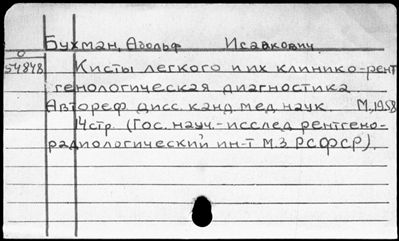 Бухман, Адольф Исаакович.
О
54848
Кисты легкого и их клинико-рент
генологическая диагностика.
Автореф. дисс. канд. мед. наук. М, 1958
14 стр. (Гос. науч.-исслед. рентгено-
радиологический ин-т М.З. РСФСР).